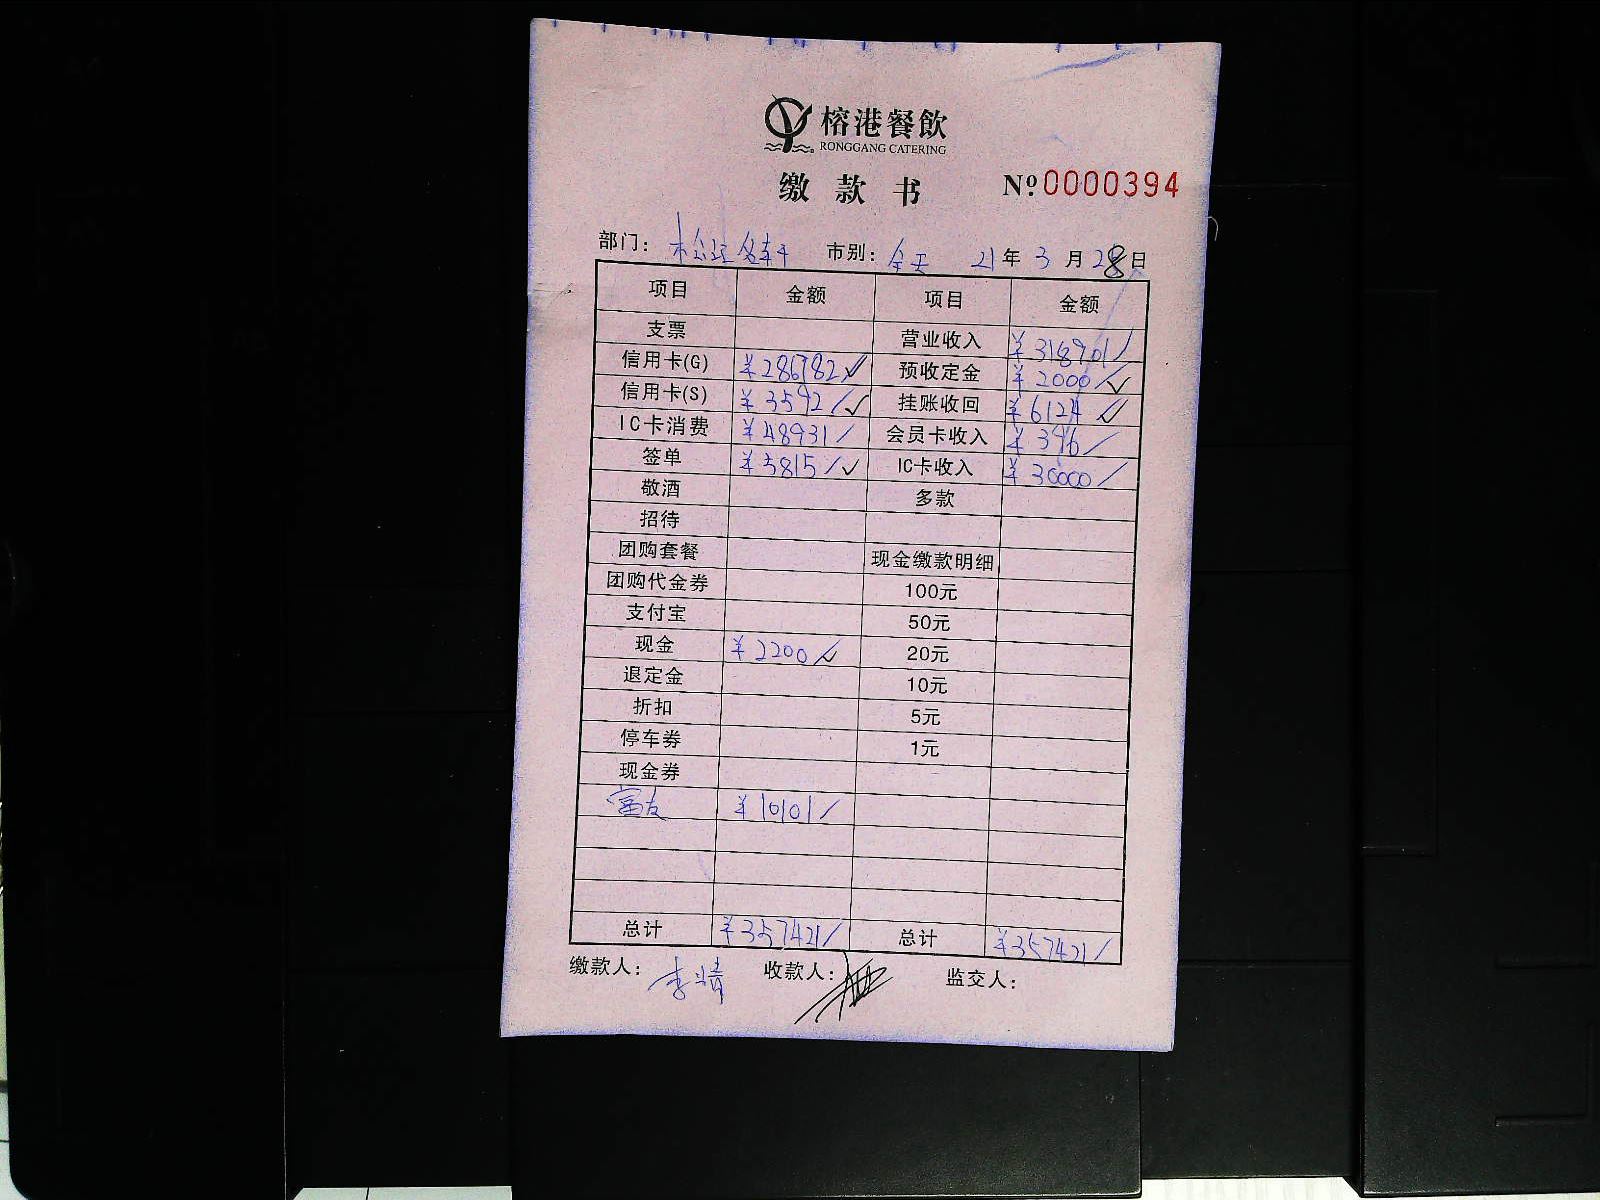 榕港餐飲
RONGGANG CATERING
缴款书 №0000394
部门: 松江名轩 市别: 全天 21年3月28日
项目 金额 项目 金额
支票 营业收入 ¥318901
信用卡(G) ¥286782 预收定金 ¥2000
信用卡(S) ¥3592 挂账收回 ¥6124
IC卡消费 ¥48931 会员卡收入 ¥396
签单 ¥5815 IC卡收入 ¥30000
敬酒 多款
招待
团购套餐 现金缴款明细
团购代金券 100元
支付宝 50元
现金 ¥2200 20元
退定金 10元
折扣 5元
停车券 1元
现金券
富友 ¥10101
总计 ¥357421 总计 ¥357421
缴款人: 李婧 收款人: 监交人: